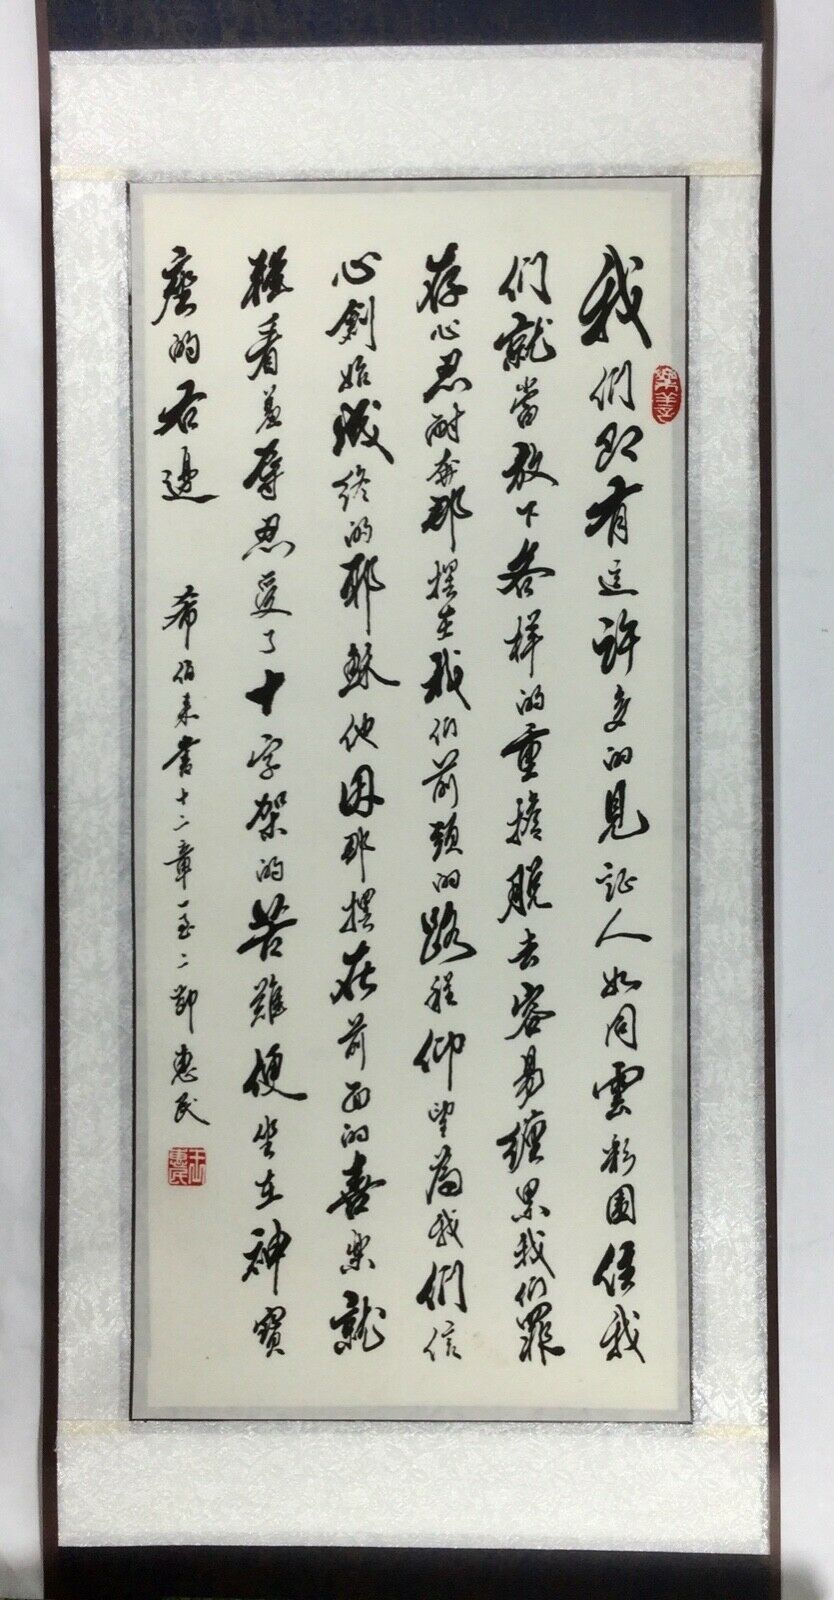 我們即有這許多的見證人如同雲彩圍住我
們就當放下各样的重擔脱去容易纏累我们罪
存心忍耐奔那擺在我们前頭的路程仰望為我們信
心創始成终的耶穌他因那摆在前面的喜樂就
輕看羞辱忍受了十字架的苦難便坐在神寶
座的右邊
希伯来書十二章一至二節 惠民
樂善
惠民